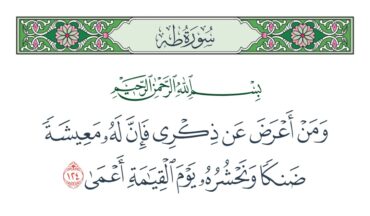 سُورَةُ طه
بِسْمِ اللَّهِ الرَّحْمَٰنِ الرَّحِيمِ
وَمَنْ أَعْرَضَ عَن ذِكْرِى فَإِنَّ لَهُۥ مَعِيشَةً
ضَنكًا وَنَحْشُرُهُۥ يَوْمَ ٱلْقِيَٰمَةِ أَعْمَىٰ ١٢٤